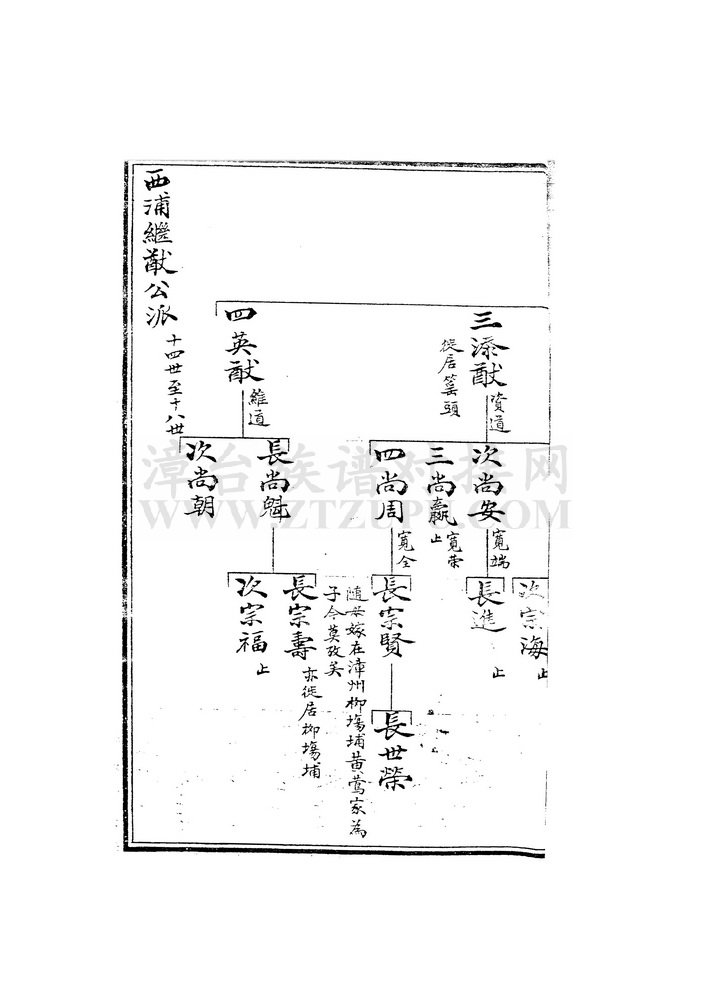 三添猷
資道
徙居篁頭
次尚安
寬端
三尚嬴
寬荣
止
四尚周
寬全
次宗海
止
長進
止
長宗賢
隨母嫁在漳州柳塲埔黄莺家為
子今莫攷矣
長世榮
四英猷
維道
長尚魁
次尚朝
長宗壽
亦徙居柳塲埔
次宗福
止
西浦繼猷公派
十四世至十八世
漳台族谱对接网
WWW.ZTZUPU.COM